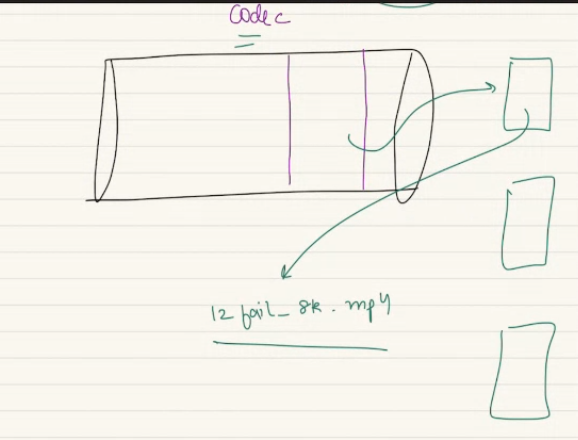 Codec
12 fail_8k.mp4